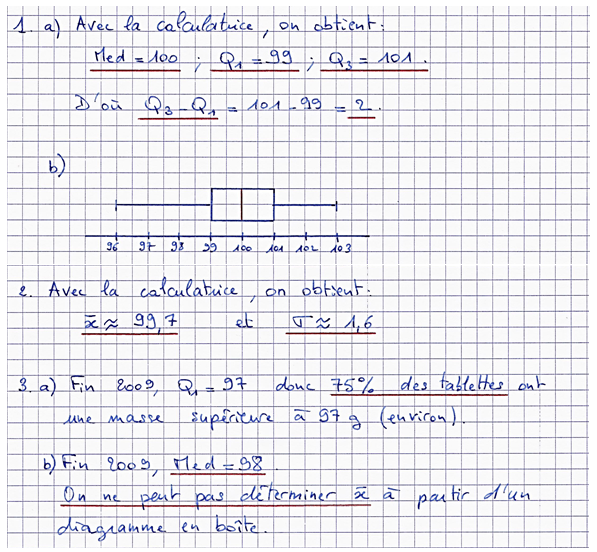 1. a) Avec la calculatrice, on obtient:
Med = 100 ; Q₁ = 99 ; Q₃ = 101.
D'où Q₃ - Q₁ = 101 - 99 = 2.
b)
96 97 98 99 100 101 102 103
2. Avec la calculatrice, on obtient:
x̄ ≈ 99,7 et σ ≈ 1,6
3. a) Fin 2009, Q₁ = 97 donc 75% des tablettes ont
une masse supérieure à 97 g (environ).
b) Fin 2009, Med = 98.
On ne peut pas déterminer x̄ à partir d'un
diagramme en boîte.